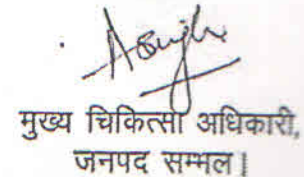 मुख्य चिकित्सा अधिकारी,
जनपद सम्भल।